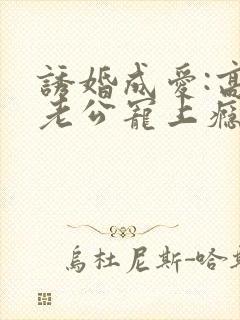 誘婚成愛:高
老公寵上癮
烏杜尼斯-哈斯